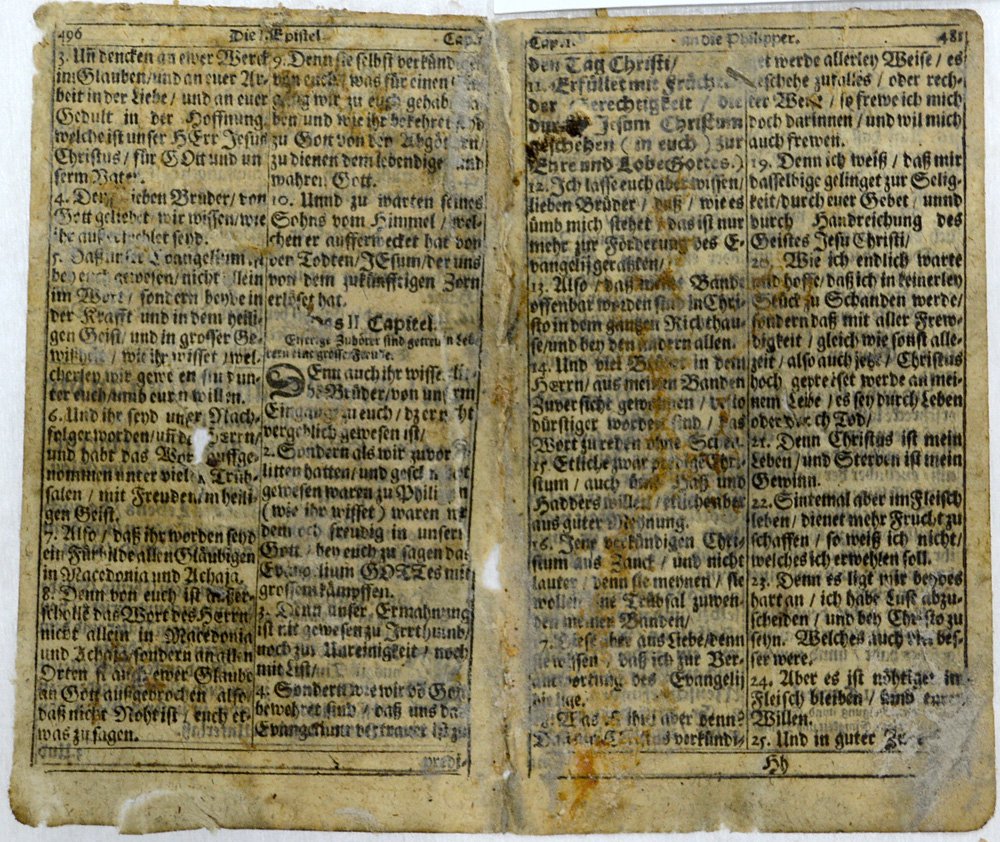 496 Die I. Epistel Cap.
3. Uñ dencken an ewer Werck
im Glauben / und an euer Ar-
beit in der Liebe / und an euer
Gedult in der Hoffnung
welche ist unser HErr Jesus
Christus / für GOtt und un
serm Vater.
4. Denn lieben Brüder / von
Gott geliebet wir wissen / wie
ihr außerwehlet seyd.
5. Daß unser Evangelium ist
bey euch gewesen / nicht allein
im Wort / sondern beyde in
der Krafft und in dem heili-
gen Geist / und in grosser Ge-
wißheit / wie ihr wisset / wel-
cherley wir gewesen sind un-
ter euch / umb euren willen.
6. Und ihr seyd unser Nach-
folger worden / uñ des Herrn /
und habt das Wort auffge-
nommen unter vielen Trüb-
salen / mit Freuden im heili-
gen Geist.
7. Also / daß ihr worden seyd
ein Fürbilde allen Gläubigen
in Macedonia und Achaja.
8. Denn von euch ist
scholle das Wort des Herrn
nicht allein in Macedonia
und Achaja / sondern an allen
Orten ewer Glaube
an Gott außgebrochen also
daß nicht Noht ist / euch et-
was zu sagen.
9. Denn sie selbst verkündi
von euch was für einen
gang wir zu euch gehab
ben und wie ihr bekehret
zu Gott von der Abgöt
zu dienen dem lebendige und
wahren Gott.
10. Unnd zu warten seines
Sohns vom Himmel / wel-
chen er aufferwecket hat von
der Todten / JEsum / der uns
von dem zukünfftigen Zorn
erlöset hat.
Das II Capitel.
Eiferige Zuhörer sind getreuen Leh-
rern eine grosse Freude.
DEnn auch ihr wisset lie-
be Brüder / von unserm
Eingang zu euch / dz er nicht
vergeblich gewesen ist /
2. Sondern als wir zuvor
litten hatten / und
gewesen waren zu Phili
( wie ihr wisset ) waren
dem och freudig in unserm
Gott / bey euch zu sagen das
Evangelium GOTTes mit
grossem kämpffen.
3. Denn unser Ermahnung
ist nit gewesen zu Irrthumb /
noch zur Unreinigkeit / noch
mit List /
4. Sondern wie wir vo Gott
bewehret sind / daß uns das
Evangelium vertrauet ist zu
predi-
Cap. 1. an die Philipper. 481
den Tag Christi /
11. Erfüllet mit Früchten
der Gerechtigkeit / die
durch Jesum Christum
geschehen ( in euch ) zur
Ehre und Lobe Gottes.)
12. Ich lasse euch aber wissen /
lieben Brüder / daß / wie es
ümb mich stehet / das ist nur
mehr zur Förderung des E-
vangelij gerahten /
13. Also / daß meine Bande
offenbar worden sind in Chri-
sto in dem gantzen Richthau-
se / und bey den andern allen.
14. Und viel Brüder in dem
Herrn / aus meinen Banden
Zuversicht gewonnen / desto
dürstiger worden sind / das
Wort zu reden ohne Scheu.
15. Etliche zwar predige Chri-
stum / auch Haß und
Hadders willen / etliche aber
aus guter Meynung.
16. Jene verkündigen Chri-
stum aus Zanck / und nicht
lauter / denn sie meynen / sie
wollen eine Trübsal zuwen-
den meinen Banden /
17. Diese aber aus Liebe / denn
sie wissen / daß ich zur Ver-
antwortung des Evangelij
hie lige.
18. Was ist ihm aber denn?
Daß nur Christus verkündi-
get werde allerley Weise / es
geschehe zufalles / oder rech-
ter Weise / so frewe ich mich
doch darinnen / und wil mich
auch frewen.
19. Denn ich weiß / daß mir
dasselbige gelinget zur Selig-
keit / durch euer Gebet / unnd
durch Handreichung des
Geistes Jesu Christi /
20. Wie ich endlich warte
und hoffe / daß ich in keinerley
Stück zu Schanden werde /
sondern daß mit aller Frew-
digkeit / gleich wie sonst alle-
zeit / also auch jetzt / Christus
hoch gepreiset werde an mei-
nem Leibe / es sey durch Leben
oder durch Tod /
21. Denn Christus ist mein
Leben / und Sterben ist mein
Gewinn.
22. Sintemal aber im Fleisch
leben / dienet mehr Frucht zu
schaffen / so weiß ich nicht /
welches ich erwehlen soll.
23. Denn es ligt mir beydes
hart an / ich habe Lust abzu-
scheiden / und bey Christo zu
seyn. Welches auch viel bes-
ser were.
24. Aber es ist nöhtiger im
Fleisch bleiben / umb eurer
Willen.
25. Und in guter
Hh